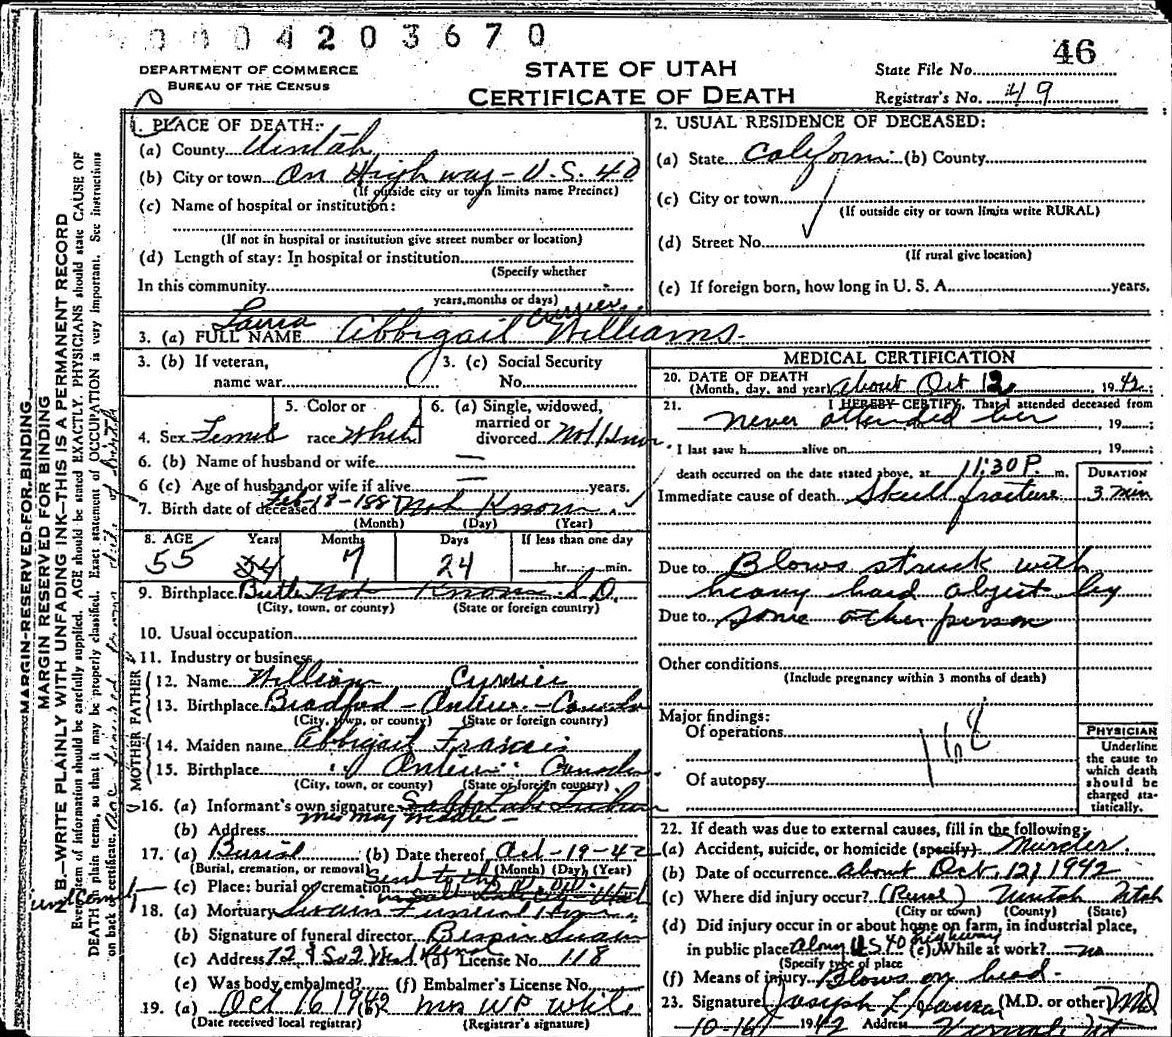 0004203670
46
DEPARTMENT OF COMMERCE
BUREAU OF THE CENSUS
STATE OF UTAH
CERTIFICATE OF DEATH
State File No.
Registrar's No. 49
MARGIN RESERVED FOR BINDING
MARGIN RESERVED FOR BINDING
N. B.—WRITE PLAINLY WITH UNFADING INK—THIS IS A PERMANENT RECORD
Every item of information should be carefully supplied. AGE should be stated EXACTLY. PHYSICIANS should state CAUSE OF
DEATH in plain terms, so that it may be properly classified. Exact statement of OCCUPATION is very important. See instructions
on back of certificate.
1. PLACE OF DEATH:-
(a) County Uintah
(b) City or town On Highway - U.S. 40
(If outside city or town limits name Precinct)
(c) Name of hospital or institution:
(If not in hospital or institution give street number or location)
(d) Length of stay: In hospital or institution
(Specify whether
In this community
years, months or days)
2. USUAL RESIDENCE OF DECEASED:
(a) State Californ (b) County
(c) City or town
(If outside city or town limits write RURAL)
(d) Street No.
(If rural give location)
(e) If foreign born, how long in U. S. A. years.
3. (a) FULL NAME Laura Abbigail Currier Williams.
3. (b) If veteran,
name war
3. (c) Social Security
No.
4. Sex Female
5. Color or
race White
6. (a) Single, widowed,
married or
divorced Not Know
6. (b) Name of husband or wife —
6 (c) Age of husband or wife if alive — years.
7. Birth date of deceased Feb-18-188 Not Known
(Month) (Day) (Year)
8. AGE Years Months Days If less than one day
55 54 7 24 hr. min.
9. Birthplace Butte Not Known S.D.
(City, town, or county) (State or foreign country)
10. Usual occupation
11. Industry or business
FATHER
12. Name William Currier
13. Birthplace Bradford - Canada
(City, town, or county) (State or foreign country)
MOTHER
14. Maiden name Abbigail Francis
15. Birthplace Canada
(City, town, or county) (State or foreign country)
16. (a) Informant's own signature
Mrs May
(b) Address
17. (a) Burial (b) Date thereof Oct-19-42
(Burial, cremation, or removal) (Month) (Day) (Year)
(c) Place: burial or cremation Sent to
18. (a) Mortuary Swain Funeral Home
(b) Signature of funeral director Swain
(c) Address (d) License No. 118
(e) Was body embalmed? (f) Embalmer's License No.
19. (a) Oct 16 1942 (b) Mrs WP White
(Date received local registrar) (Registrar's signature)
MEDICAL CERTIFICATION
20. DATE OF DEATH
(Month, day, and year) About Oct 12, 1942
21. I HEREBY CERTIFY, That I attended deceased from
never attended her, 19
I last saw h alive on, 19
death occurred on the date stated above, at 11:30 P. m.
DURATION
Immediate cause of death Skull fracture 3 min
Due to Blows struck with
heavy hard object by
Due to some other person
Other conditions
(Include pregnancy within 3 months of death)
Major findings:
Of operations
Of autopsy
168
PHYSICIAN
Underline
the cause to
which death
should be
charged sta-
tistically.
22. If death was due to external causes, fill in the following:
(a) Accident, suicide, or homicide (specify) Murder.
(b) Date of occurrence About Oct, 12, 1942
(c) Where did injury occur? (Rural) Uintah Utah
(City or town) (County) (State)
(d) Did injury occur in or about home on farm, in industrial place,
in public place Along US 40 highway (e) While at work? no
(Specify type of place
(f) Means of injury Blows on head.
23. Signature Joseph L Hansen (M.D. or other) MD
10-16 1942 Address Vernal, Ut